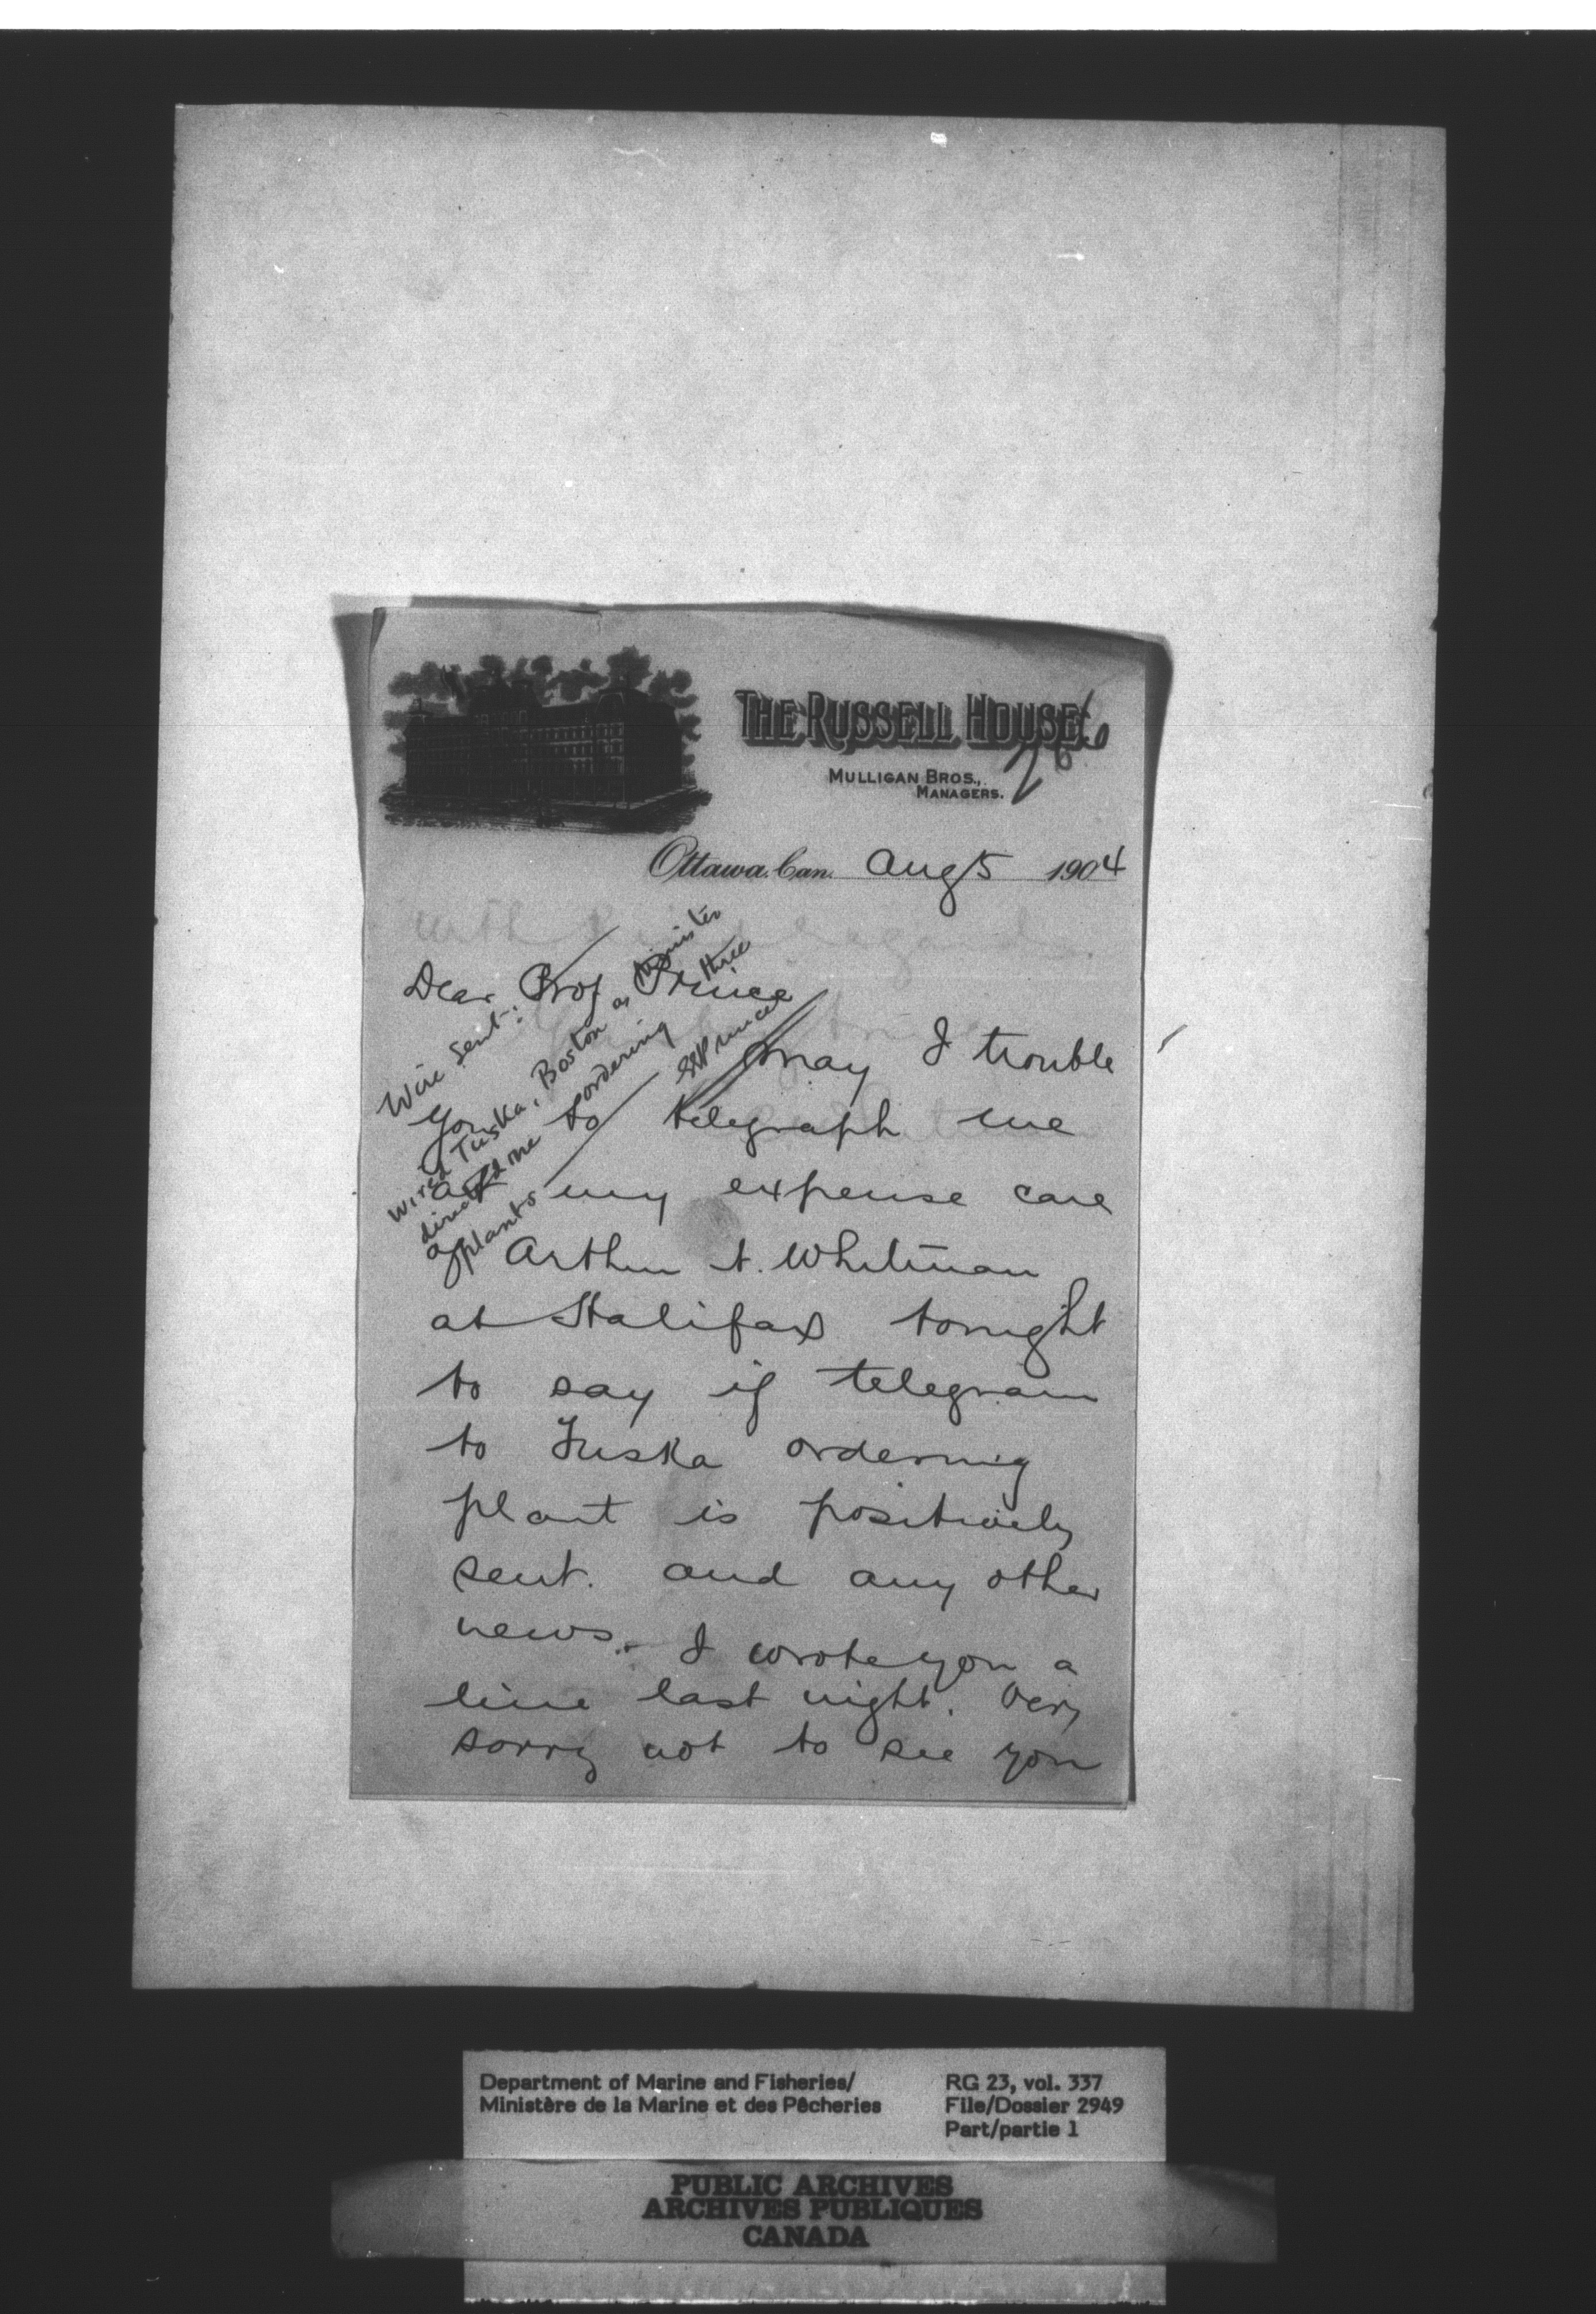 THE RUSSELL HOUSE
266
MULLIGAN BROS.,
MANAGERS.
Ottawa. Can. Aug 5 1904
Dear Prof Prince
may I trouble
you to telegraph me
at my expense care
of Arthur N. Whitman
at Halifax tonight
to say if telegram
to Tuska ordering
plant is positively
sent. and any other
news. - I wrote you a
line last night. Very
sorry not to see you
Wire sent:
Wired Tuska, Boston as Minister
directed me ordering three
plants
EEPrince
Department of Marine and Fisheries/
Ministère de la Marine et des Pêcheries
RG 23, vol. 337
File/Dossier 2949
Part/partie 1
PUBLIC ARCHIVES
ARCHIVES PUBLIQUES
CANADA